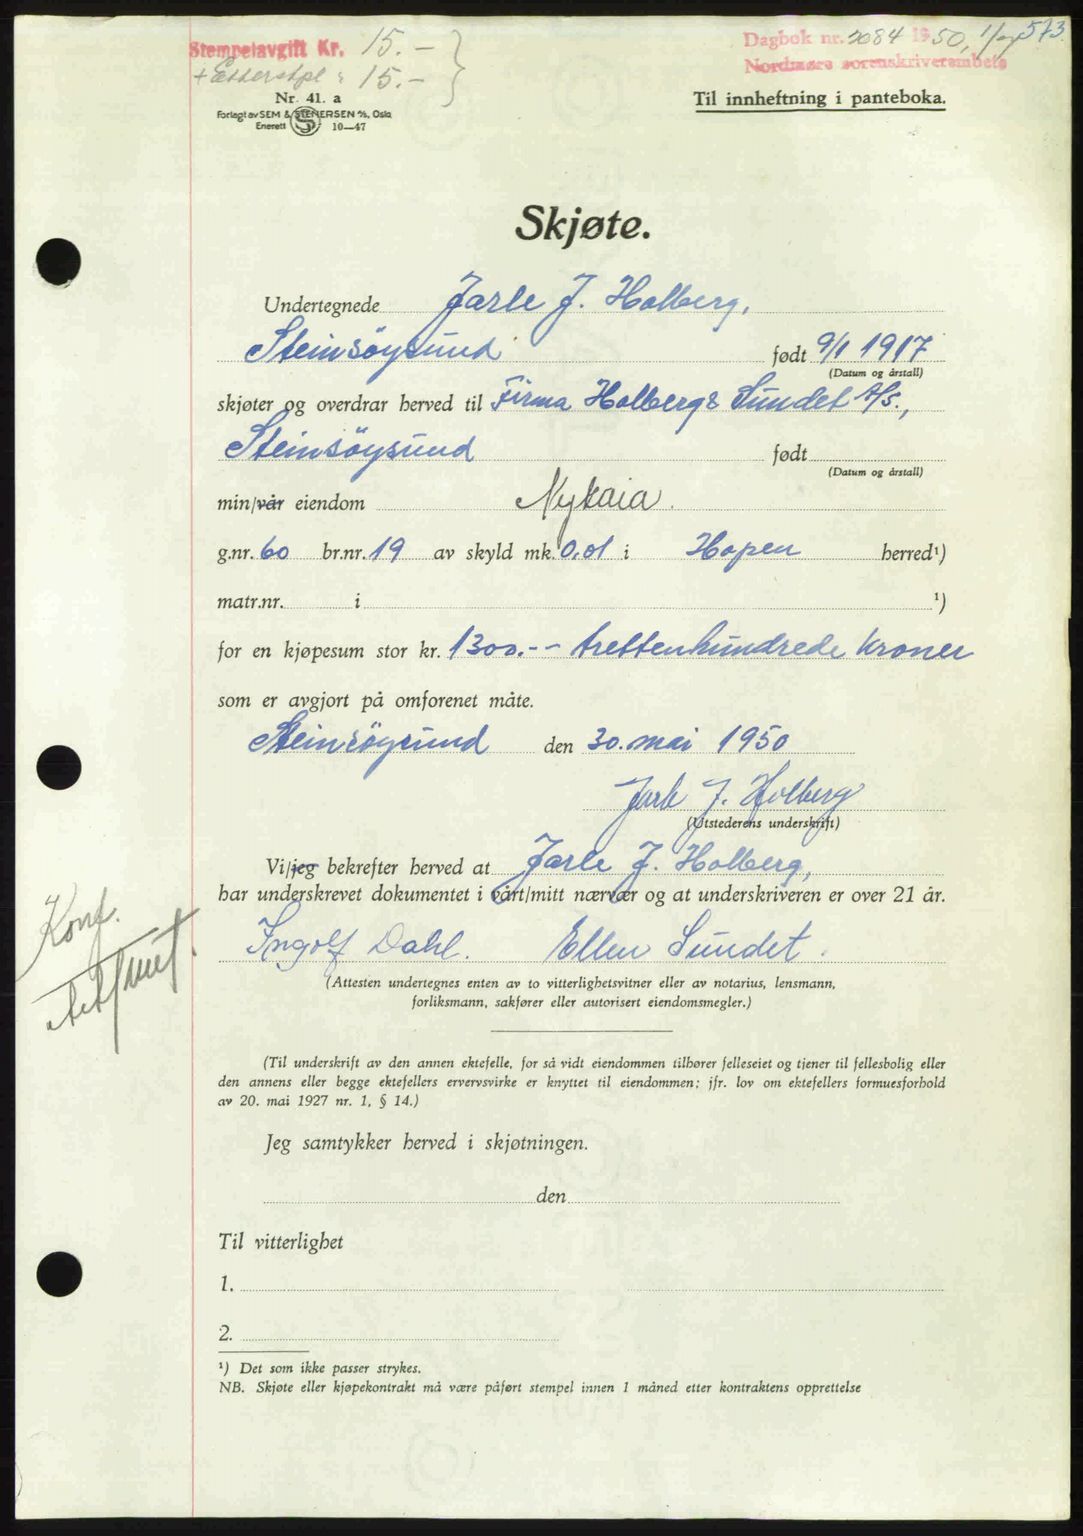 Stempelavgift Kr. 15.-
+ Etterstpl : 15.-
Dagbok nr. 2084 1950, 573
Nordmøre sorenskriverembete
Nr. 41. a
Forlagt av SEM & STENERSEN A/S, Oslo
Enerett 10—47
Til innheftning i panteboka.
Skjøte.
Undertegnede Jarle J. Holberg,
Steinsöysund født 9/1 1917
(Datum og årstall)
skjøter og overdrar herved til Firma Holberg & Sundet A/S.,
Steinsöysund født
(Datum og årstall)
min/vår eiendom Nykaia.
g.nr. 60 br.nr. 19 av skyld mk. 0,01 i Hopen herred¹)
matr.nr. i ¹)
for en kjøpesum stor kr. 1300.-- trettenhundrede kroner
som er avgjort på omforenet måte.
Steinsöysund den 30. mai 1950
Jarle J. Holberg
(Utstederens underskrift)
Vi/jeg bekrefter herved at Jarle J. Holberg,
har underskrevet dokumentet i vårt/mitt nærvær og at underskriveren er over 21 år.
Konf.
Ingolf Dahl. Ellen Sundet.
(Attesten undertegnes enten av to vitterlighetsvitner eller av notarius, lensmann,
forliksmann, sakfører eller autorisert eiendomsmegler.)
(Til underskrift av den annen ektefelle, for så vidt eiendommen tilhører felleseiet og tjener til fellesbolig eller
den annens eller begge ektefellers ervervsvirke er knyttet til eiendommen; jfr. lov om ektefellers formuesforhold
av 20. mai 1927 nr. 1, § 14.)
Jeg samtykker herved i skjøtningen.
den
Til vitterlighet
1.
2.
¹) Det som ikke passer strykes.
NB. Skjøte eller kjøpekontrakt må være påført stempel innen 1 måned etter kontraktens opprettelse